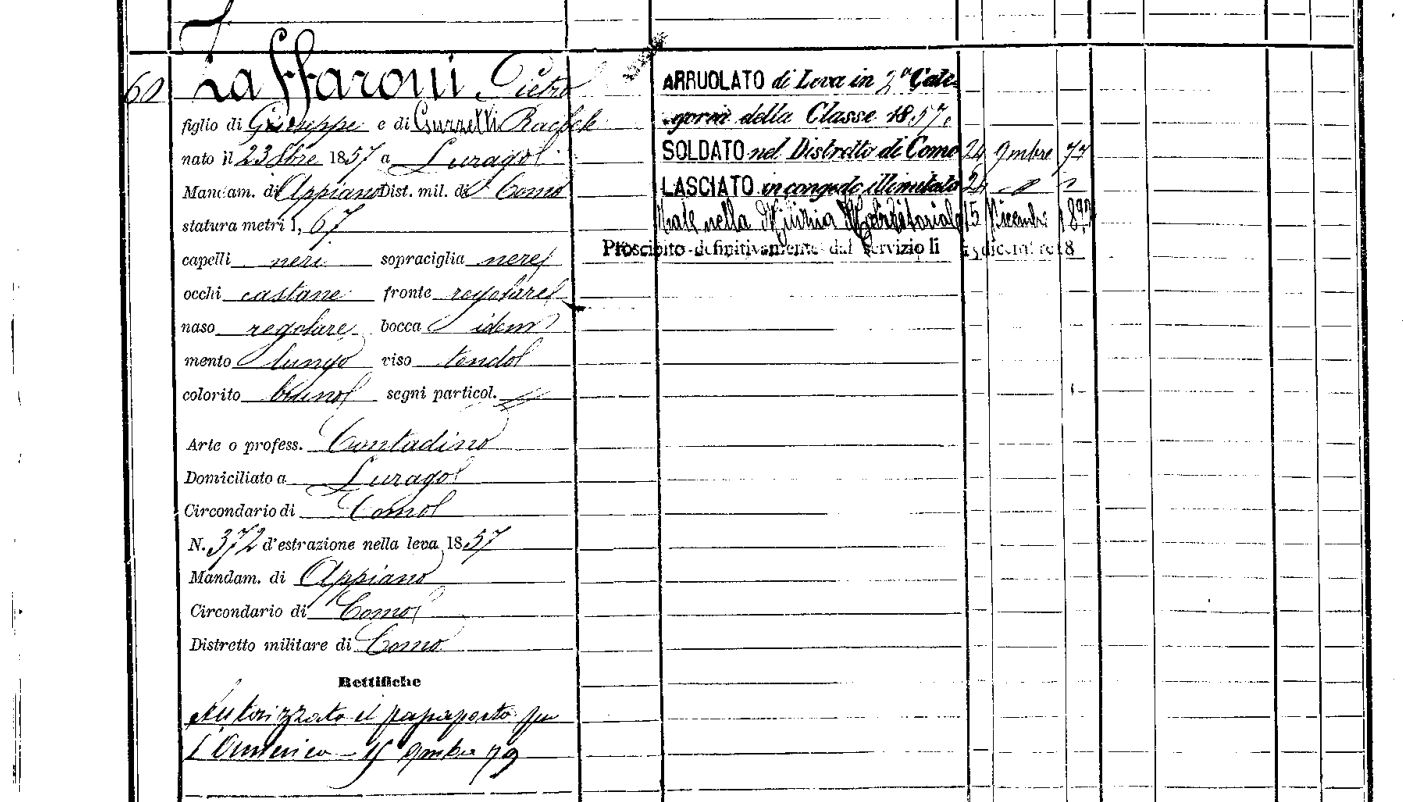 60 Zaffaroni Pietro
figlio di Giuseppe e di Guzzetti Rachele
nato il 23 8bre 1857 a Lurago
Mandam. di Appiano Dist. mil. di Como
statura metri 1, 67
capelli neri sopraciglia nere
occhi castane fronte regolare
naso regolare bocca idem
mento lungo viso tondo
colorito bruno segni particol.
Arte o profess. Contadino
Domiciliato a Lurago
Circondario di Como
N. 372 d'estrazione nella leva 1857
Mandam. di Appiano
Circondario di Como
Distretto militare di Como
Rettifiche
Autorizzato il papaporto per
l'America 15 9mbre 79
ARRUOLATO di Leva in 2a Cate-
goria della Classe 1857.
SOLDATO nel Distretto di Como 24 9mbre 77
LASCIATO in congedo illimitato 24
Tale nella Milizia Territoriale 15 Dicembre 1890
Prosciolto definitivamente dal servizio li dicembre 18